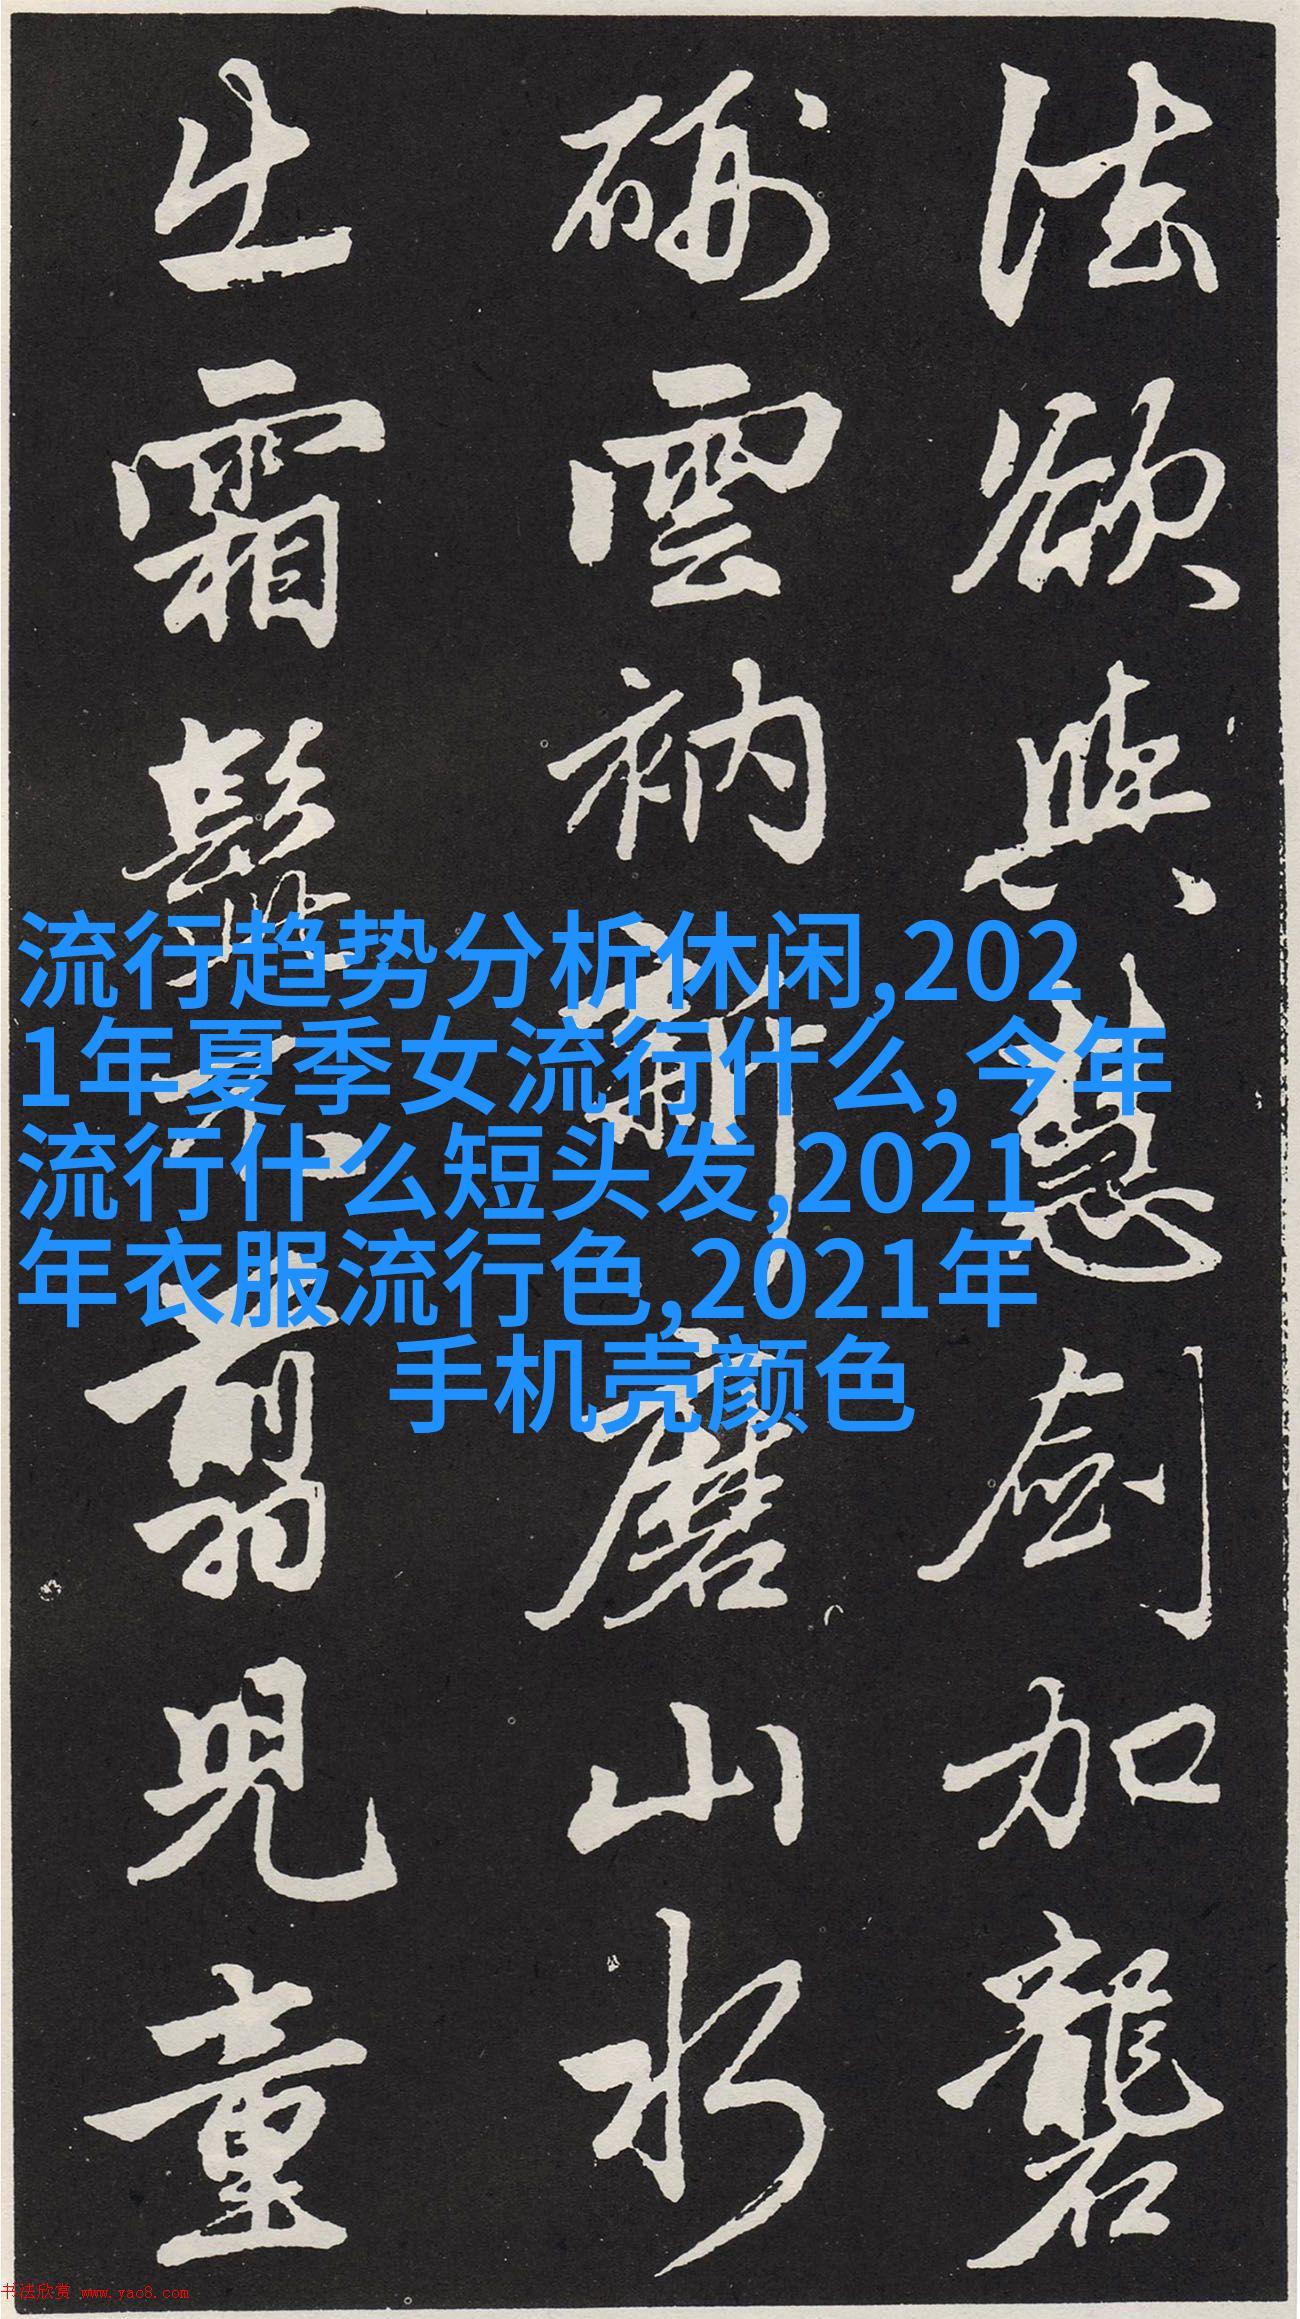 法欲與慧劍加礱
硎雲衲新磨山水
出霜髭不翦兒童
流行趋势分析休闲,202
1年夏季女流行什么,今年
流行什么短头发,2021
年衣服流行色,2021年
手机壳颜色
书法欣赏 www.yac8.com